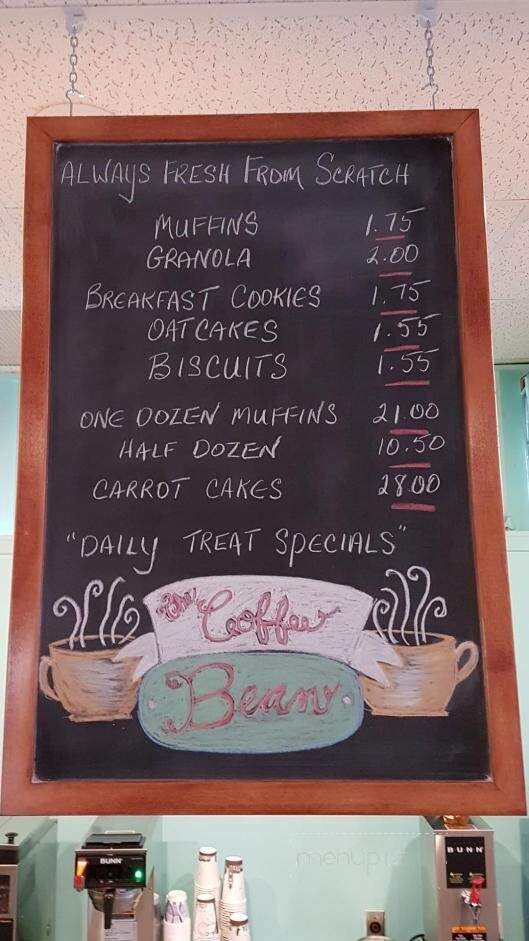 ALWAYS FRESH FROM SCRATCH
MUFFINS 1.75
GRANOLA 2.00
BREAKFAST COOKIES 1.75
OATCAKES 1.55
BISCUITS 1.55
ONE DOZEN MUFFINS 21.00
HALF DOZEN 10.50
CARROT CAKES 28.00
"DAILY TREAT SPECIALS"
the Coffee
Bean
BUNN
BUNN